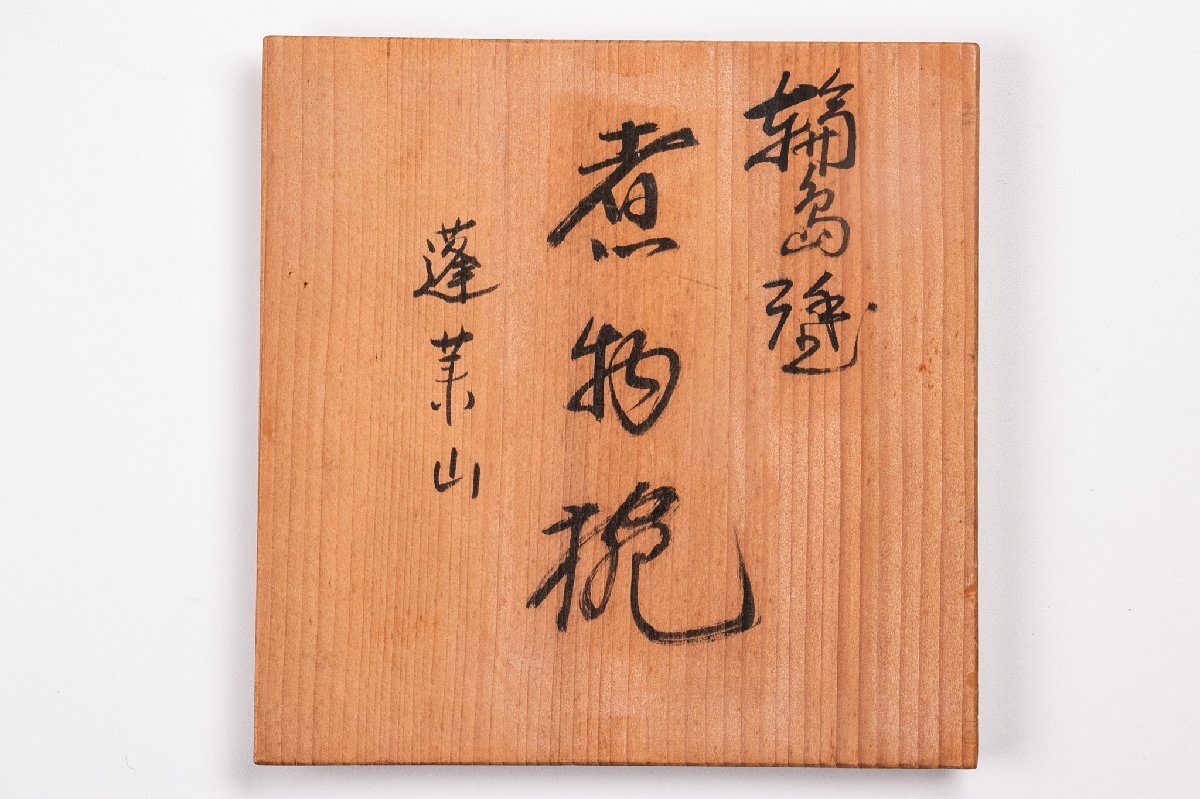 輪島塗
煮物椀
蓬莱山